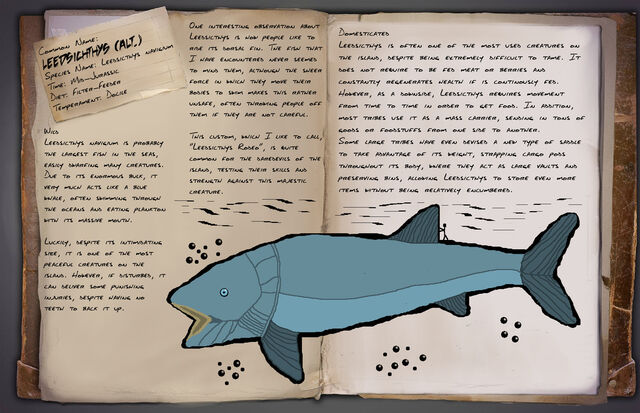 Common Name:
Leedsichthys (Alt.)
Species Name: Leedsicthys navigium
Time: Mid-Jurassic
Diet: Filter-Feeder
Temperament: Docile
Wild
Leedsicthys navigium is probably
the largest fish in the seas,
easily dwarfing many creatures.
Due to its enormous bulk, it
very much acts like a blue
whale, often swimming through
the oceans and eating plankton
with its massive mouth.
Luckily, despite its intimidating
size, it is one of the most
peaceful creatures on the
island. However, if disturbed, it
can deliver some punishing
injuries, despite having no
teeth to back it up.
One interesting observation about
Leedsicthys is how people like to
ride its dorsal fin. The fish that
I have encountered never seemed
to mind them, although the sheer
force in which they move their
bodies to swim makes this rather
unsafe, often throwing people off
them if they are not careful.
This custom, which I like to call,
"Leedsicthys Rodeo", is quite
common for the daredevils of the
island, testing their skills and
strength against this majestic
creature.
Domesticated
Leedsicthys is often one of the most used creatures on
the island, despite being extremely difficult to tame. It
does not require to be fed meat or berries and
constantly regenerates health if is continuously fed.
However, as a downside, Leedsicthys requires movement
from time to time in order to get food. In addition,
most tribes use it as a mass carrier, sending in tons of
goods or foodstuffs from one side to another.
Some large tribes have even devised a new type of saddle
to take advantage of its weight, strapping cargo pods
throughout its body, where they act as large vaults and
preserving bins, allowing Leedsicthys to store even more
items without being relatively encumbered.